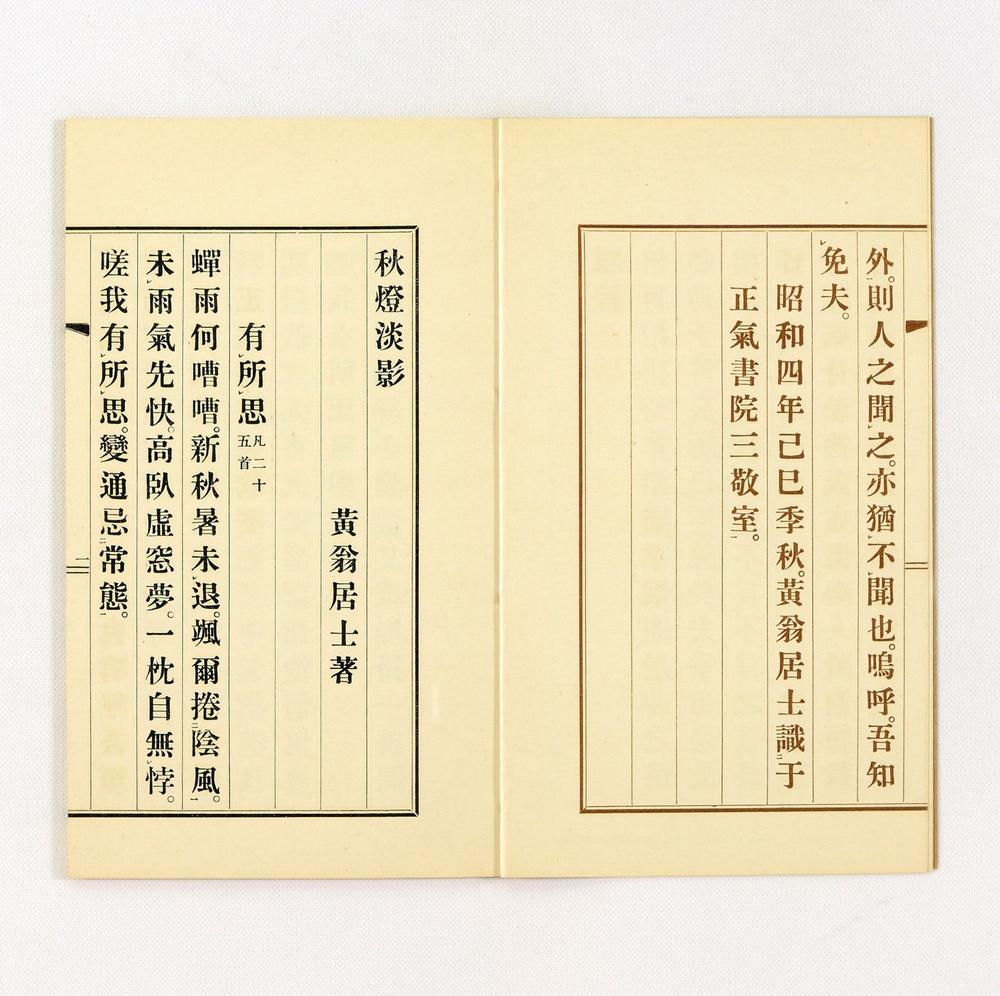 外。則人之聞レ之。亦猶レ不レ聞也。嗚呼。吾知
レ免夫。
昭和四年己巳季秋。黃翁居士識二于
正氣書院三敬室一。
秋燈淡影
黃翁居士著
有レ所レ思 凡二十
五首
蟬雨何嘈嘈。新秋暑未レ退。颯爾捲二陰風一。
未レ雨氣先快。高臥虛窓夢。一枕自無レ悖。
嗟我有レ所レ思。變通忌二常態一。
一